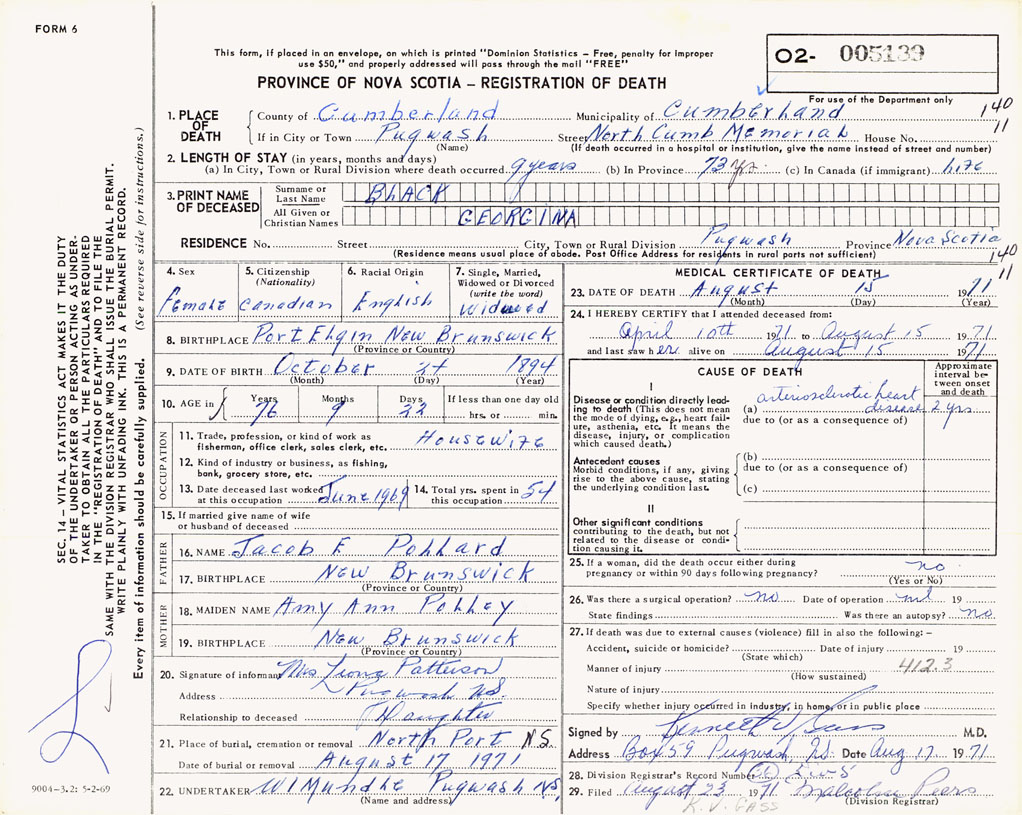 FORM 6
This form, if placed in an envelope, on which is printed "Dominion Statistics – Free, penalty for improper
use $50," and properly addressed will pass through the mail "FREE"
PROVINCE OF NOVA SCOTIA – REGISTRATION OF DEATH
O2- 005139
For use of the Department only
140
11
1. PLACE OF DEATH
County of Cumberland Municipality of Cumberland
If in City or Town Pugwash Street North Cumb Memorial House No.
(Name) (If death occurred in a hospital or institution, give the name instead of street and number)
2. LENGTH OF STAY (in years, months and days)
(a) In City, Town or Rural Division where death occurred 9 years (b) In Province 73 yrs. (c) In Canada (if immigrant) life
3. PRINT NAME OF DECEASED
Surname or Last Name BLACK
All Given or Christian Names GEORGINA
RESIDENCE No. Street City, Town or Rural Division Pugwash Province Nova Scotia
(Residence means usual place of abode. Post Office Address for residents in rural parts not sufficient)
140
11
4. Sex
Female
5. Citizenship
(Nationality)
Canadian
6. Racial Origin
English
7. Single, Married,
Widowed or Divorced
(write the word)
Widowed
8. BIRTHPLACE Port Elgin New Brunswick
(Province or Country)
9. DATE OF BIRTH October 24 1894
(Month) (Day) (Year)
10. AGE in
Years 76
Months 9
Days 22
If less than one day old
hrs. or min.
OCCUPATION
11. Trade, profession, or kind of work as
fisherman, office clerk, sales clerk, etc. Housewife
12. Kind of industry or business, as fishing,
bank, grocery store, etc.
13. Date deceased last worked
at this occupation June 1969
14. Total yrs. spent in
this occupation 54
15. If married give name of wife
or husband of deceased
FATHER
16. NAME Jacob F Pollard
17. BIRTHPLACE New Brunswick
(Province or Country)
MOTHER
18. MAIDEN NAME Amy Ann Polley
19. BIRTHPLACE New Brunswick
(Province or Country)
20. Signature of informant Mrs Leona Patterson
Address Pugwash N.S.
Relationship to deceased Daughter
21. Place of burial, cremation or removal North Port N.S.
Date of burial or removal August 17 1971
22. UNDERTAKER W I Mundle Pugwash N.S.
(Name and address)
MEDICAL CERTIFICATE OF DEATH
23. DATE OF DEATH August 15 1971
(Month) (Day) (Year)
24. I HEREBY CERTIFY that I attended deceased from:
April 10th 1971 to August 15 1971
and last saw her alive on August 15 1971
CAUSE OF DEATH
Approximate
interval be-
tween onset
and death
I
Disease or condition directly lead-
ing to death (This does not mean
the mode of dying, e.g., heart fail-
ure, asthenia, etc. It means the
disease, injury, or complication
which caused death.)
(a) arteriosclerotic heart
disease 2 yrs
due to (or as a consequence of)
Antecedent causes
Morbid conditions, if any, giving
rise to the above cause, stating
the underlying condition last.
(b)
due to (or as a consequence of)
(c)
II
Other significant conditions
contributing to the death, but not
related to the disease or condi-
tion causing it.
25. If a woman, did the death occur either during
pregnancy or within 90 days following pregnancy? no
(Yes or No)
26. Was there a surgical operation? no Date of operation nil 19
State findings Was there an autopsy? no
27. If death was due to external causes (violence) fill in also the following: –
Accident, suicide or homicide? Date of injury 19
(State which)
412.3
Manner of injury
(How sustained)
Nature of injury
Specify whether injury occurred in industry, in home, or in public place
Signed by Kenneth V Gass M.D.
Address Box 59 Pugwash N.S. Date Aug 17 1971
28. Division Registrar's Record Number
29. Filed August 23 1971 Malcolm Peers
(Division Registrar)
K. V. GASS
SEC. 14 – VITAL STATISTICS ACT MAKES IT THE DUTY
OF THE UNDERTAKER OR PERSON ACTING AS UNDER-
TAKER TO OBTAIN ALL THE PARTICULARS REQUIRED
IN THE "REGISTRATION OF DEATH" AND TO FILE THE
SAME WITH THE DIVISION REGISTRAR WHO SHALL ISSUE THE BURIAL PERMIT.
WRITE PLAINLY WITH UNFADING INK. THIS IS A PERMANENT RECORD.
Every item of information should be carefully supplied. (See reverse side for instructions.)
9004-3.2: 5-2-69